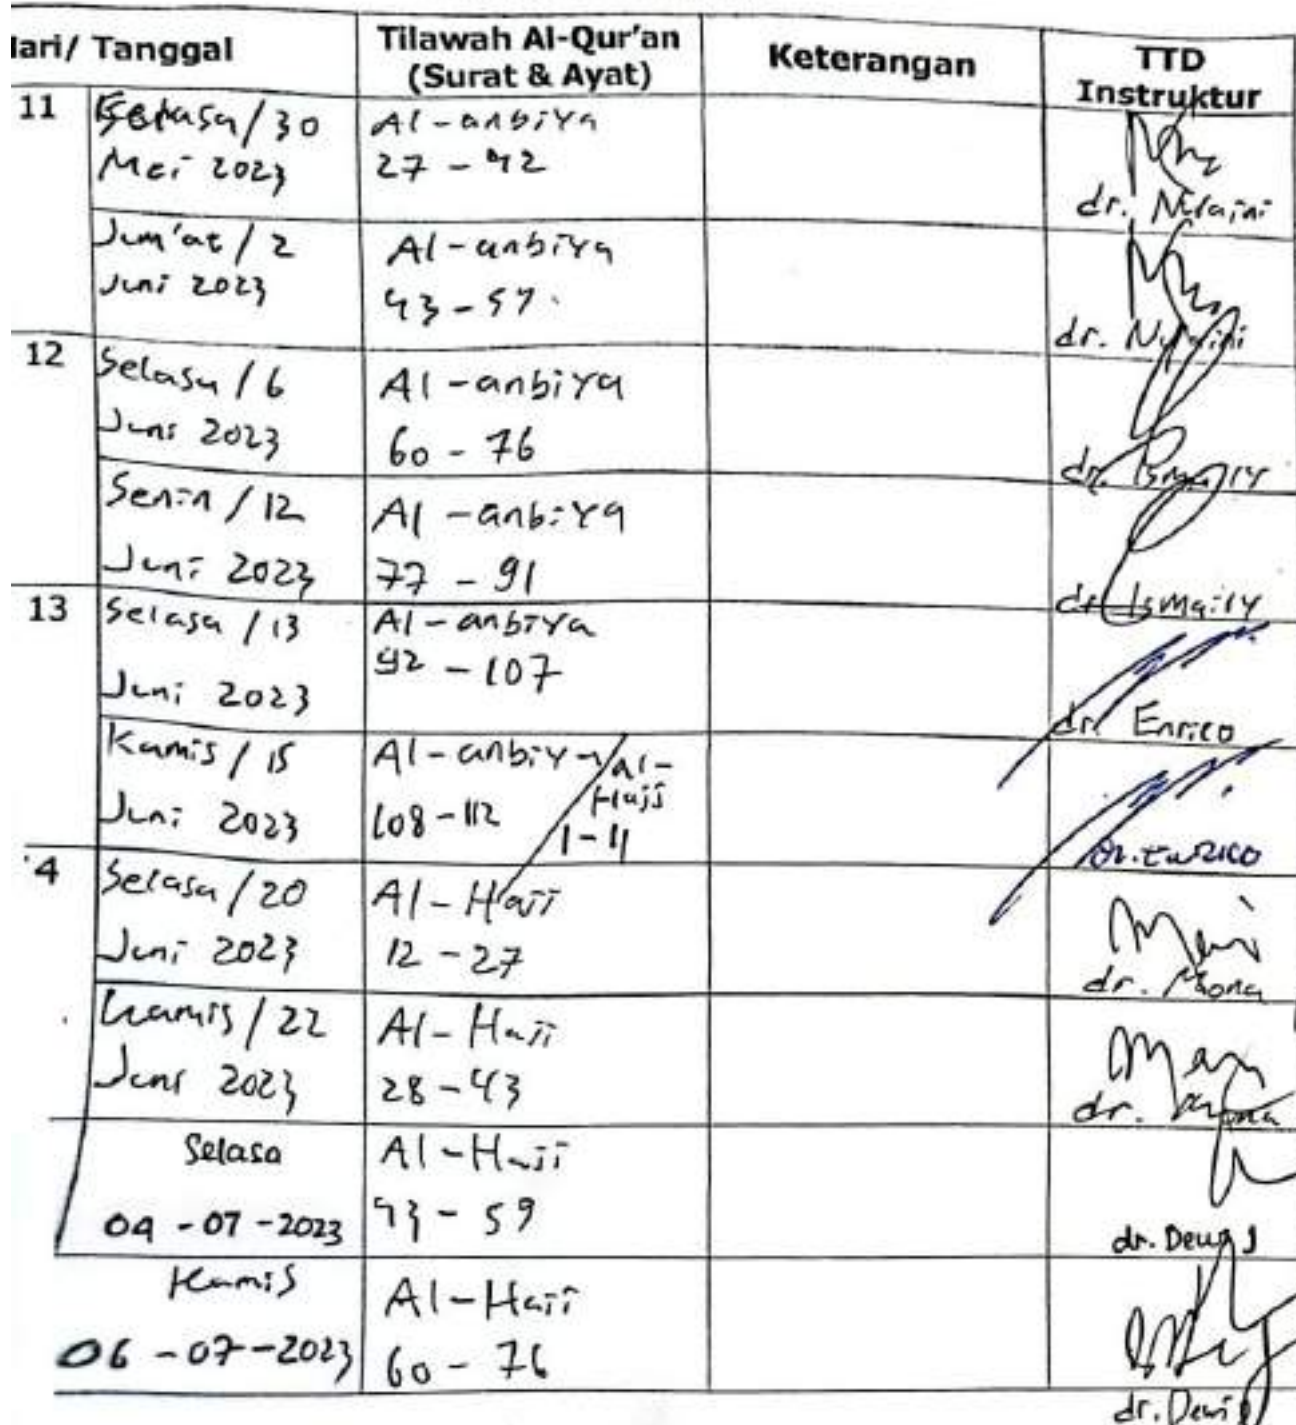 Hari/ Tanggal
Tilawah Al-Qur'an
(Surat & Ayat)
Keterangan
TTD
Instruktur
11
Selasa / 30
Mei 2023
Al-anbiya
27 - 42
dr. Nuraini
Jum'at / 2
Juni 2023
Al-anbiya
43 - 59
dr. Nuraini
12
Selasa / 6
Juni 2023
Al-anbiya
60 - 76
dr. Ismaily
Senin / 12
Juni 2023
Al-anbiya
77 - 91
dr. Ismaily
13
Selasa / 13
Juni 2023
Al-anbiya
92 - 107
dr. Enrico
Kamis / 15
Juni 2023
Al-anbiy
108 - 112
/ al-
Hajj
1 - 11
dr. Enrico
4
Selasa / 20
Juni 2023
Al-Hajj
12 - 27
dr.
Kamis / 22
Juni 2023
Al-Hajj
28 - 43
dr.
Selasa
04 - 07 - 2023
Al-Hajj
43 - 59
dr. Dewi J
Kamis
06 - 07 - 2023
Al-Hajj
60 - 76
dr. Dewi